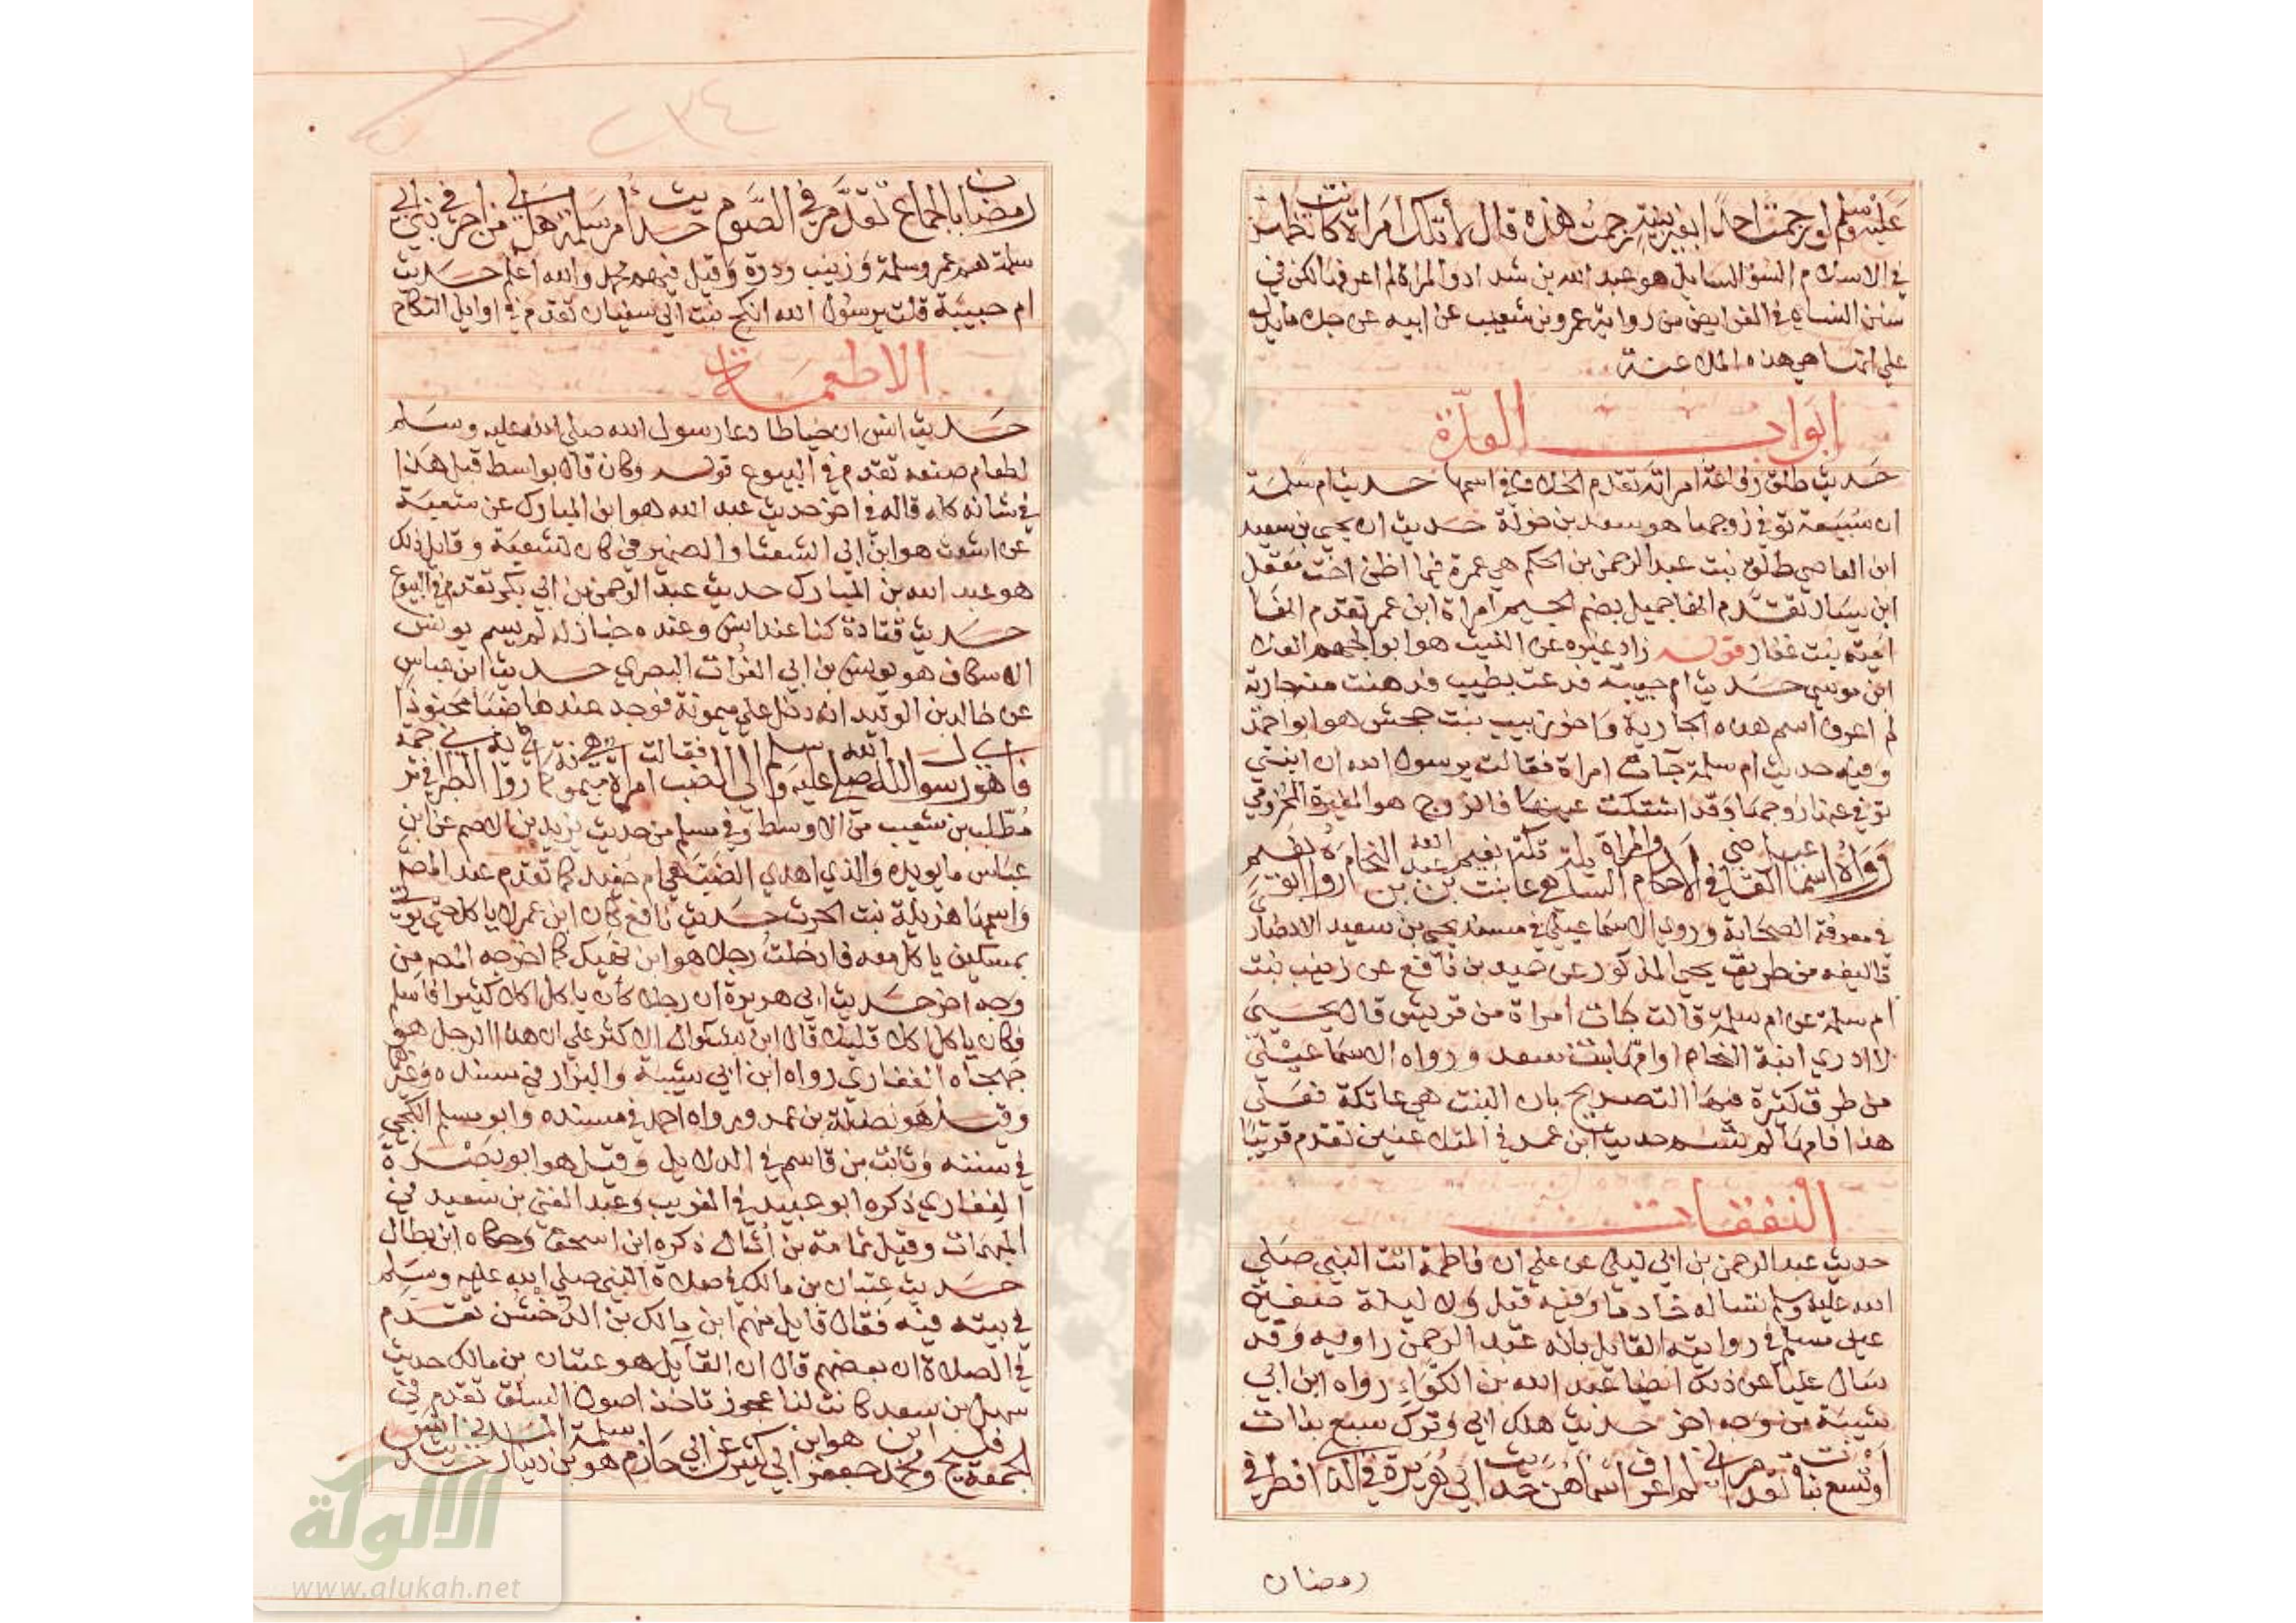 عليه وسلم لو رجمت احدا بغير بينة رجمت هذه قال لا تلك امراة كانت تظهر
في الاسلام السؤ السايل هو عبد الله بن شداد والمراة لم اعرفها لكن في
سنن النساي في الفرايض من رواية عمرو بن شعيب عن ابيه عن جده ما يدل
علي انها هي هذه الملاعنة
ابواب العدة
حديث طلق رفاعة امراته تقدم الخلاف في اسمها حديث ام سلمة
ان سبيعة توفي زوجها هو سعد بن خولة حديث ان يحيي بن سعيد
ابن العاصي طلق بنت عبد الرحمن بن الحكم هي عمرة فيما اظن اخت معقل
ابن يسار تقدم انها جميل بضم الجيم امراة ابن عمر تقدم انها
امنة بنت غفار قوله زاد غيره عن الليث هو ابو الجهم العلا
ابن موسي حديث ام حبيبة فدعت بطيب فدهنت منه جارية
لم اعرف اسم هذه الجارية واخو زينب بنت جحش هو ابو احمد
وفيه حديث ام سلمة جات امراة فقالت يرسول الله ان ابنتي
توفي عنها زوجها وقد اشتكت عينها فالزوج هو المغيرة المخزومي
رواه اسماعيل القاضي في الاحكام والمراة السايلة هي عاتكة بنت نعيم بن عبد الله بن النحام رواه ابو نعيم
في معرفة الصحابة وروي الاسماعيلي في مسند يحيي بن سعيد الانصاري
تاليفه من طريق يحيي المذكور عن حميد بن نافع عن زينب بنت
ام سلمة عن ام سلمة قالت جات امراة من قريش قال يحيي
لا ادري ابنة النحام او امها بنت سعد ورواه الاسماعيلي
من طرق كثيرة فيها التصريح بان البنت هي عاتكة فعلي
هذا فامها لم تسم حديث ابن عمر في المتلاعنين تقدم قريبا
النفقات
حديث عبد الرحمن بن ابي ليلي عن علي ان فاطمة اتت النبي صلي
الله عليه وسلم تساله خادما وفيه قيل ولا ليلة صفين
عين مسلم في روايته القايل بانه عبد الرحمن راويه وقد
سال عليا عن ذلك ايضا عبد الله بن الكواء رواه ابن ابي
شيبة من وجه اخر حديث هلك ابي وترك سبع بنات
او تسع بنات تقدم اني لم اعرف اسماهن حديث ابي هريرة في الذي افطر في
رمضان
٢٣٤
رمضان بالجماع تقدم في الصوم حديث ام سلمة هل لي من اجر في بني ابي
سلمة هم عمر وسلمة وزينب ودرة وقيل فيهم محمد والله اعلم حديث
ام حبيبة قلت يرسول الله انكح بنت ابي سفيان تقدم في اوايل النكاح
الاطعمة
حديث انس ان خياطا دعا رسول الله صلي الله عليه وسلم
لطعام صنعه تقدم في البيوع قوله وكان قال بواسط قبل هذا
في شانه كله قاله في اخر حديث عبد الله هو ابن المبارك عن شعبة
عن اشعث هو ابن ابي الشعثا والضمير في كان لشعبة وقايل ذلك
هو عبد الله بن المبارك حديث عبد الرحمن بن ابي بكر تقدم في البيوع
حديث قتادة كنا عند انس وعنده خباز له لم يسم يونس
الاسكاف هو يونس بن ابي الفرات البصري حديث ابن عباس
عن خالد بن الوليد انه دخل علي ميمونة فوجد عندها ضبا محنوذا
فاهوي رسول الله صلي الله عليه وسلم الي الضب فقالت امراة هي ميمونة كما رواه الطبراني في ترجمة
مطلب بن شعيب من الاوسط وفي مسلم من حديث يزيد بن الاصم عن ابن
عباس ما يويده والذي اهدي الضب هي ام حفيد كما تقدم عند المص
واسمها هزيلة بنت الحرث حديث نافع كان ابن عمر لا ياكل حتي يوتي
بمسكين ياكل معه فادخلت رجلا هو ابن نهيك كما اخرجه المص من
وجه اخر حديث ابي هريرة ان رجلا كان ياكل اكلا كثيرا فاسلم
فكان ياكل اكلا قليلا قال ابن بشكوال الاكثر علي ان هذا الرجل هو
جهجاه الغفاري رواه ابن ابي شيبة والبزار في مسنده وغيره
وقيل هو نضلة بن عمرو رواه احمد في مسنده وابو مسلم الكجي
في سننه وثابت بن قاسم في الدلايل وقيل هو ابو بصرة
الغفاري ذكره ابو عبيد في الغريب وعبد الغني بن سعيد في
المبهمات وقيل ثمامة بن اثال ذكره ابن اسحق وحكاه ابن بطال
حديث عتبان بن مالك في صلاة النبي صلي الله عليه وسلم
في بيته فيه فقال قايل منهم اين مالك بن الدخشن تقدم
في الصلاة ان بعضهم قال ان القايل هو عتبان بن مالك حديث
سهل بن سعد كانت لنا عجوز تاخذ اصول السلق تقدم في
الجمعة فليح ومحمد بن جعفر هو ابن ابي كثير عن ابي حازم هو سلمة بن دينار المدني حديث انس
الالوكة
www.alukah.net